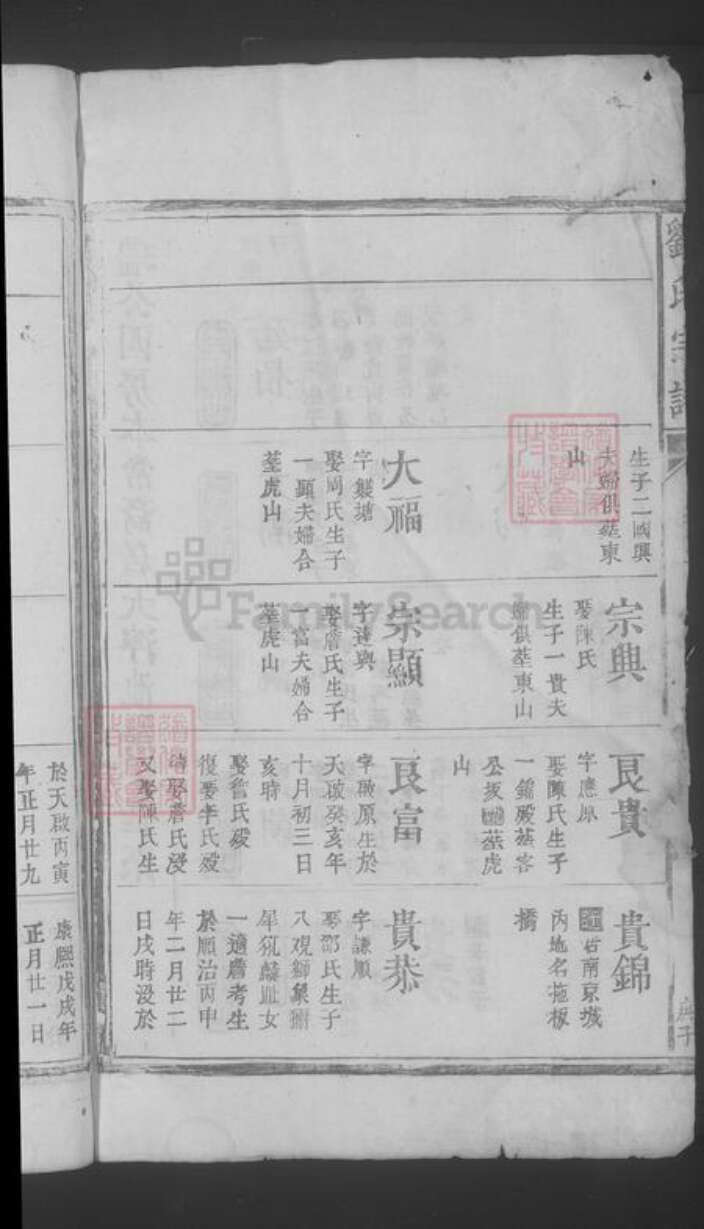 劉氏宗譜
生子二國興
夫婦俱塟東
山
大福
娶周氏生子
一顯夫婦合
塟虎山
宗興
娶陳氏
生子一貴夫
婦俱塟東山
宗顯
字達興
娶詹氏生子
一富夫婦合
塟虎山
良貴
字應原
娶陳氏生子
一錦殿塟客
塟虎
山
良富
字 原生於
天啟癸亥年
十月初三日
亥時
娶詹氏殁
復娶李氏殁
娶詹氏殁
又娶陳氏生
貴錦
居南京城
內地名拖板
橋
貴恭
字謙順
娶鄧氏生子
八觀獅象
麟趾女
一適詹考生
於順治丙申
年二月廿二
日戌時没於
於天啟丙寅
年正月廿九
康熙戊戌年
正月廿一日
FamilySearch